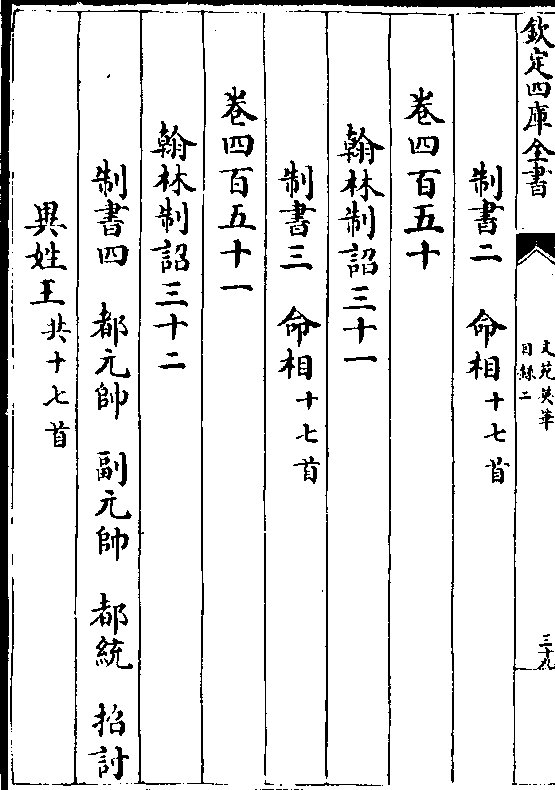 欽定四庫全書
文苑英華
目録二
三十九
制書二 命相十七首
卷四百五十
翰林制詔三十一
制書三 命相十七首
卷四百五十一
翰林制詔三十二
制書四 都元帥 副元帥 都統 招討
異姓王共十七首